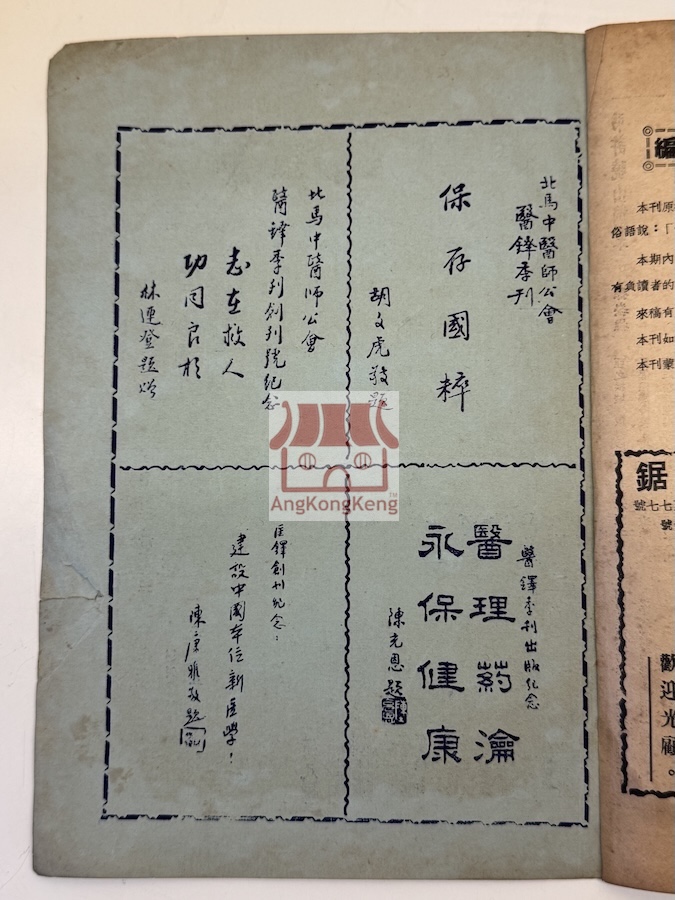 北馬中醫師公會
醫鐸季刊
保存國粹
胡文虎敬題
北馬中醫師公會
醫鐸季刊創刊號紀念
志在救人
功同良相
林連登題贈
醫鐸季刊出版紀念
醫理葯瀹
永保健康
陳充恩題
医鐸創刊紀念：
建設中國本位新医學！
陳唐雅敬題
AngKongKeng™
編
本刊原
俗語說：「
本期內
有負讀者的
來稿有
本刊如
本刊蒙
鋸
七七號
號
歡迎光顧。